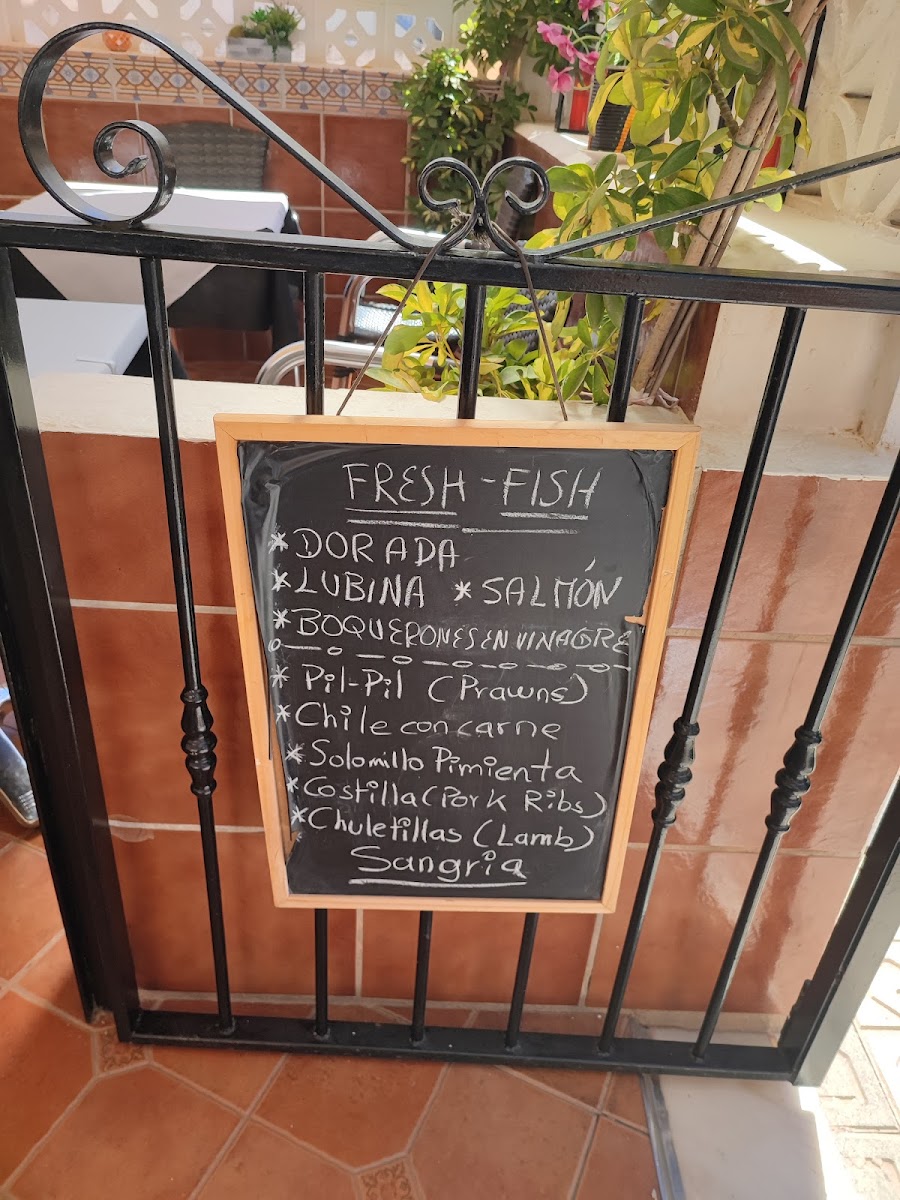 FRESH-FISH
* DORADA
* LUBINA * SALMÓN
* BOQUERONES EN VINAGRE
* Pil-Pil (Prawns)
* Chile con carne
* Solomillo Pimienta
* Costilla (Pork Ribs)
* Chuletillas (Lamb)
Sangria